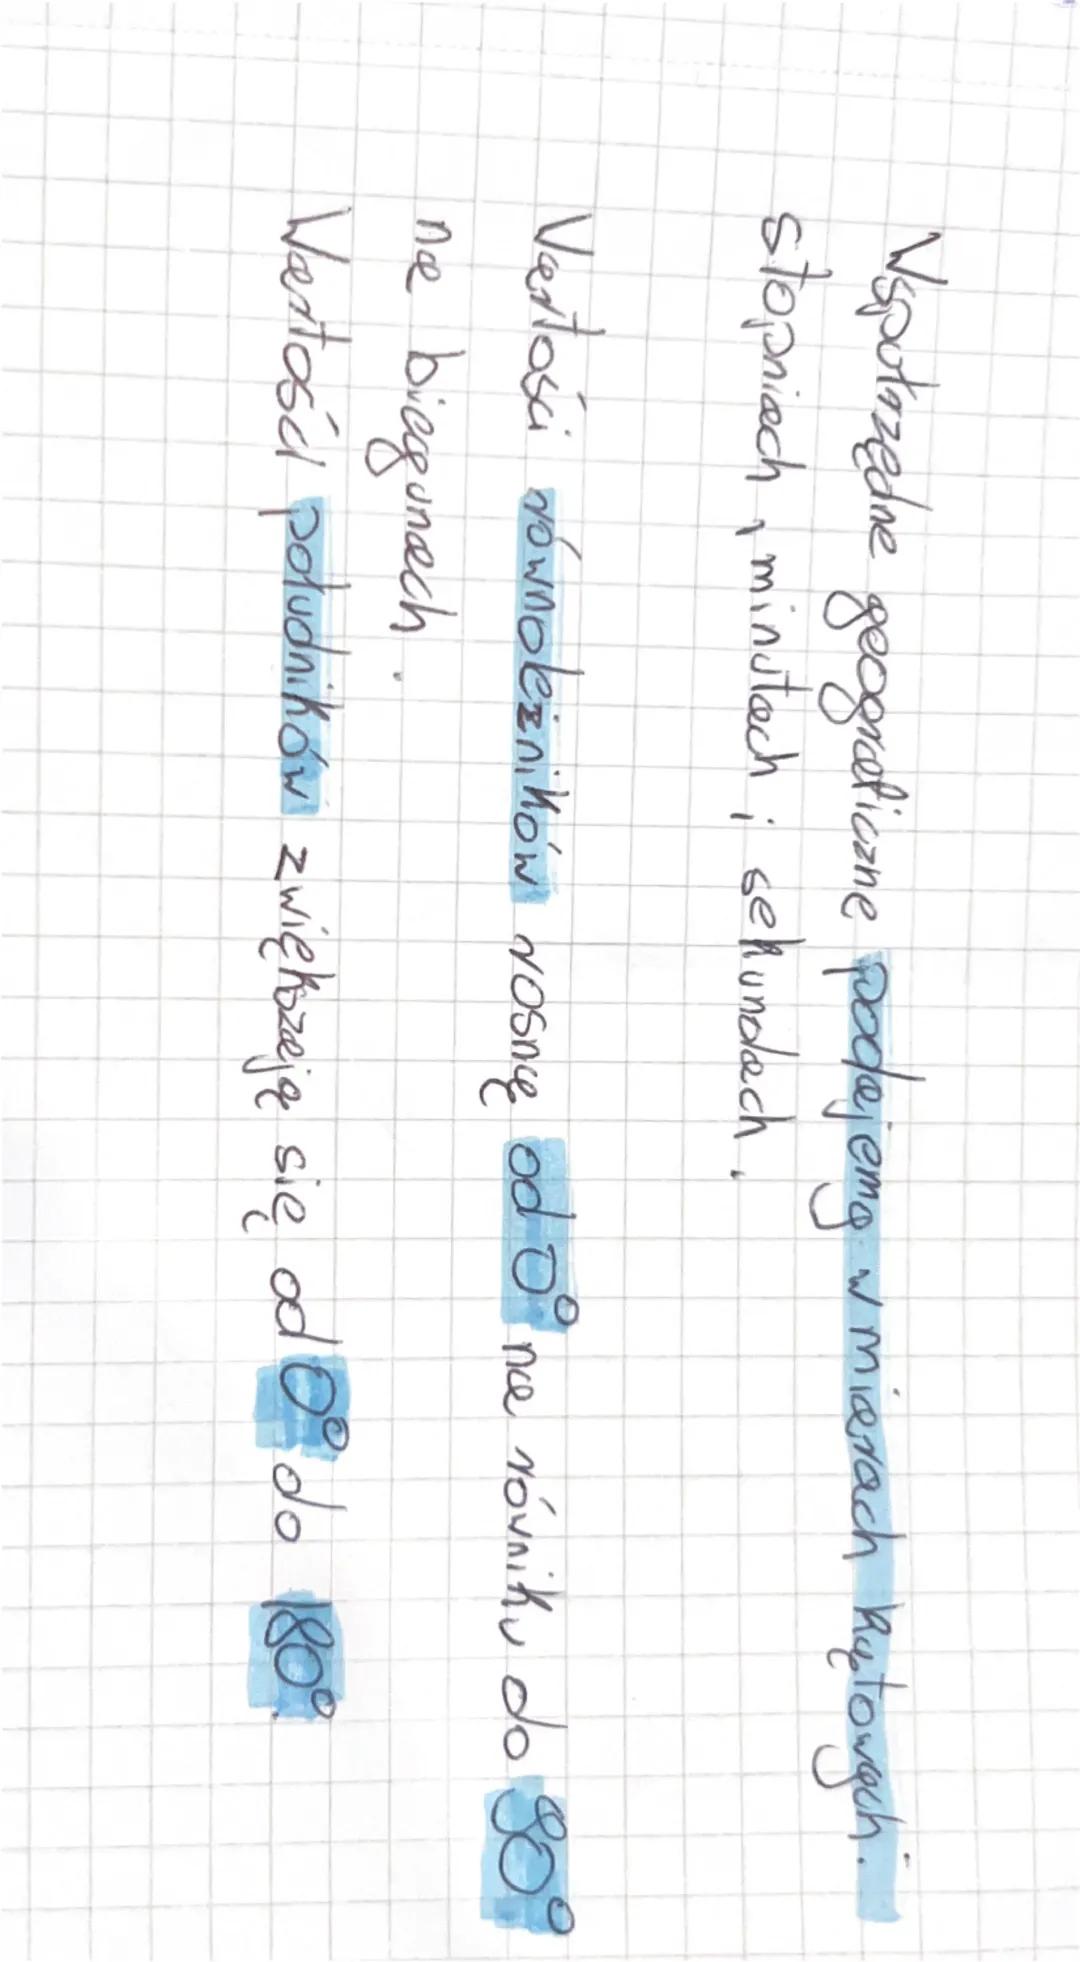 Współrzędne geograficzne podajemy w miarach kątowych:
stopniach, minutach i sekundach.
Wartości równoleżników rosną od 0° na równiku do 90°
na biegunach.
Wartości południków zwiększają się od 0° do 180°.